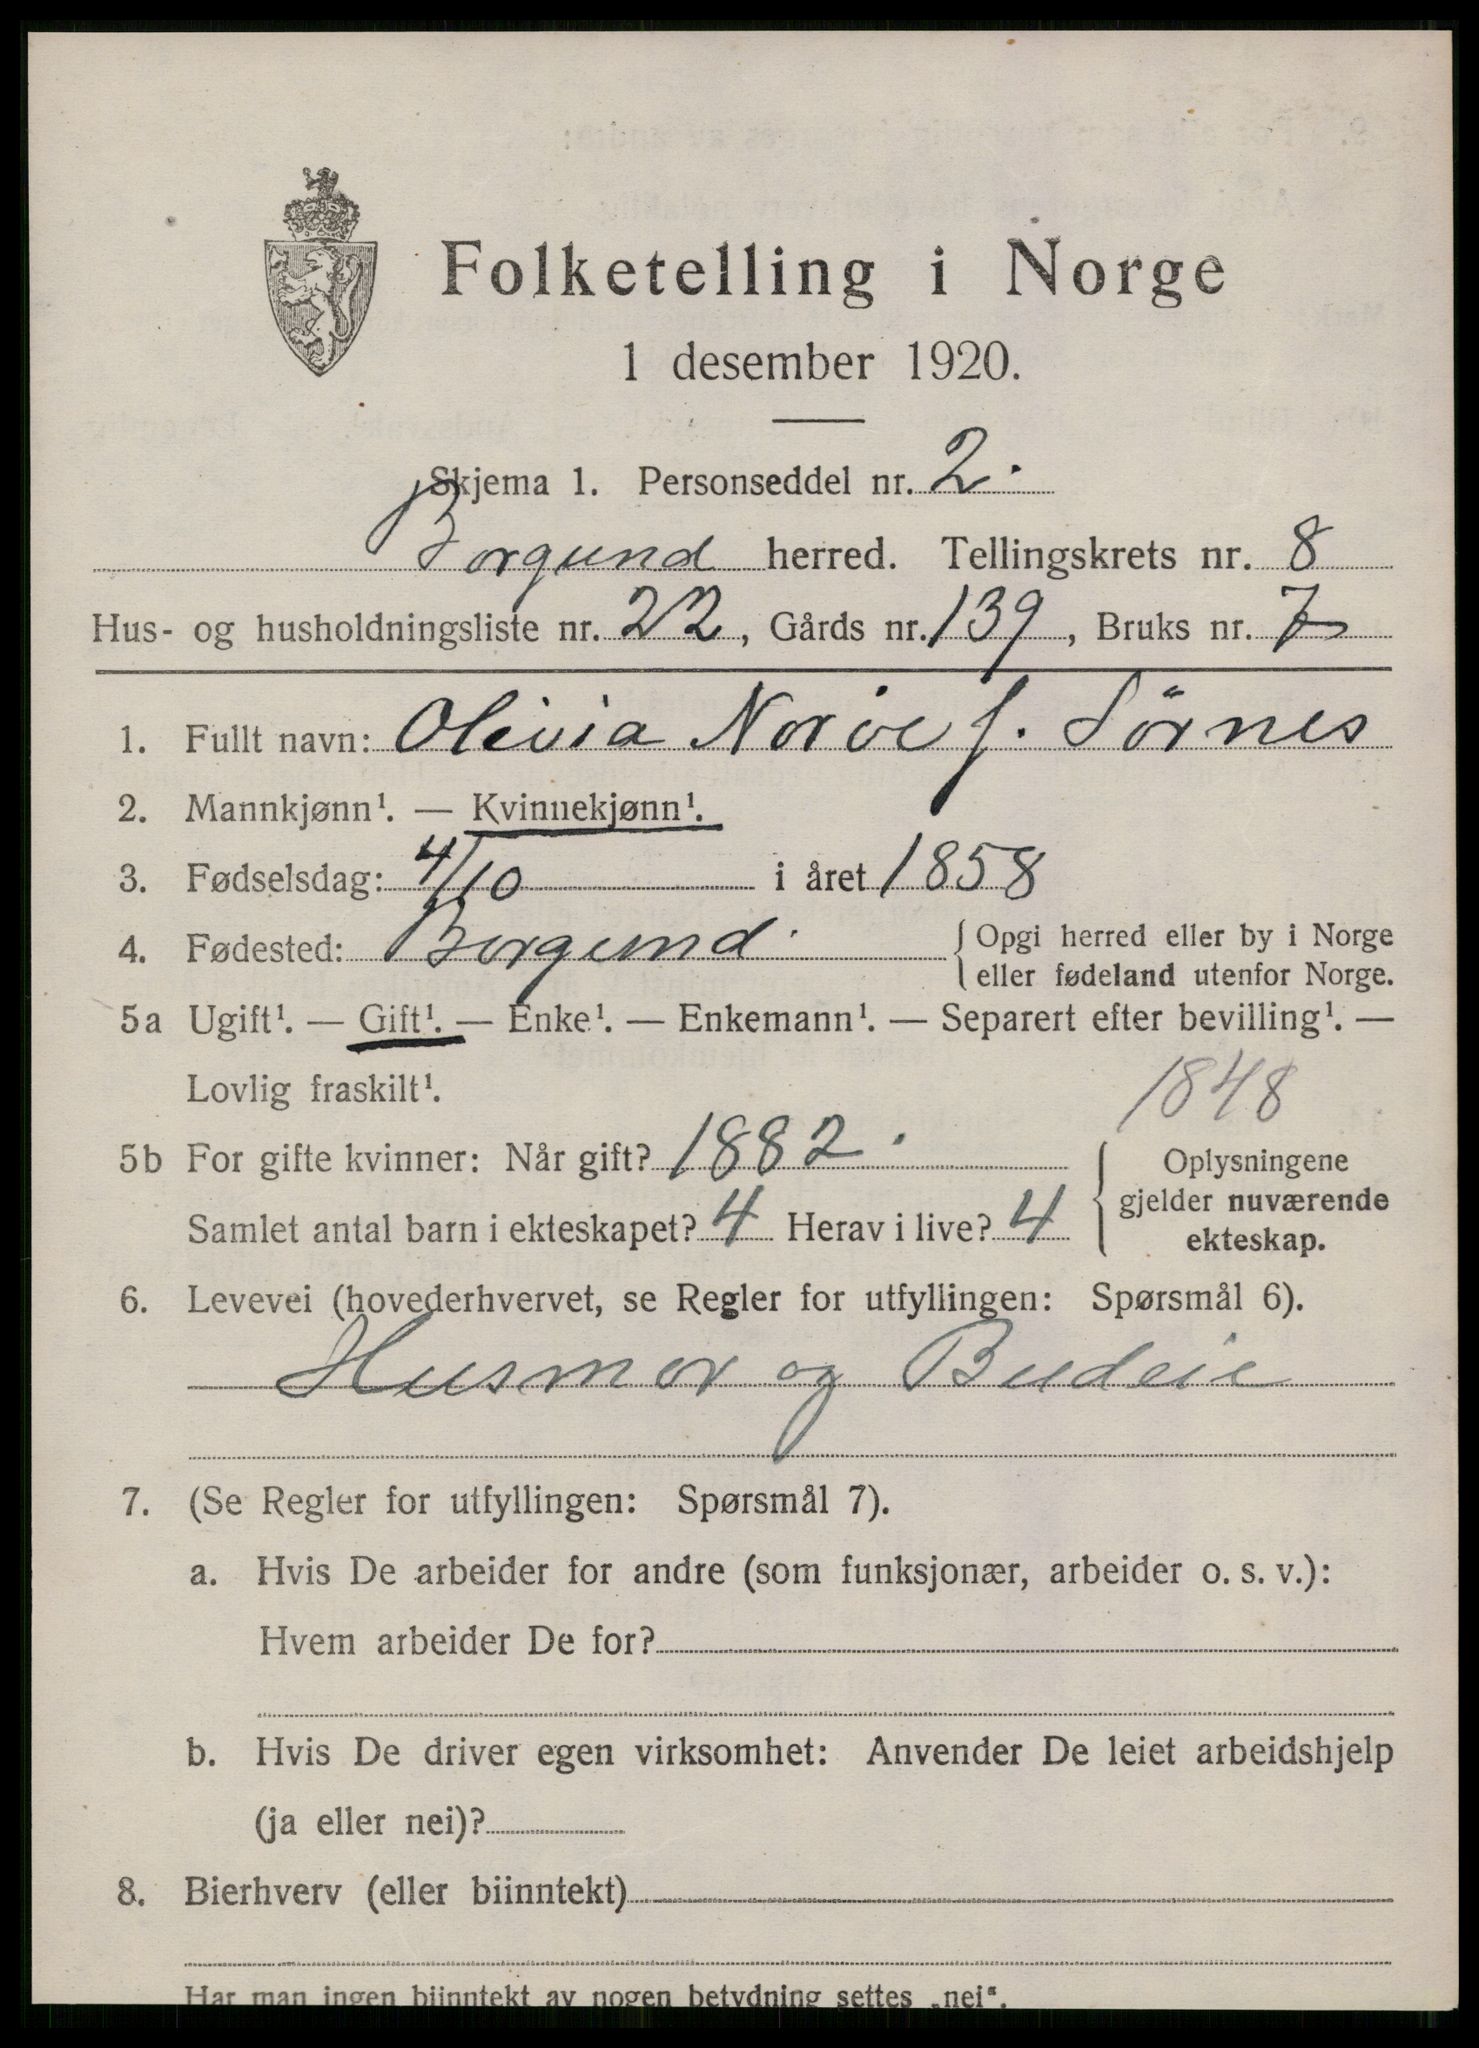 Folketelling i Norge
1 desember 1920.
Skjema 1. Personseddel nr. 2.
Borgund herred. Tellingskrets nr. 8
Hus- og husholdningsliste nr. 22, Gårds nr. 139, Bruks nr. 7
1. Fullt navn: Olivia Norve f. Sörnes
2. Mannkjønn¹. — Kvinnekjønn¹.
3. Fødselsdag: 4/10 i året 1858
4. Fødested: Borgund. { Opgi herred eller by i Norge
eller fødeland utenfor Norge.
5a Ugift¹. — Gift¹. — Enke¹. — Enkemann¹. — Separert efter bevilling¹. —
Lovlig fraskilt¹.
1848
5b For gifte kvinner: Når gift? 1882.
Samlet antal barn i ekteskapet? 4 Herav i live? 4
{ Oplysningene
gjelder nuværende
ekteskap.
6. Levevei (hovederhvervet, se Regler for utfyllingen: Spørsmål 6).
Husmor og Budeie
7. (Se Regler for utfyllingen: Spørsmål 7).
a. Hvis De arbeider for andre (som funksjonær, arbeider o. s. v.):
Hvem arbeider De for?
b. Hvis De driver egen virksomhet: Anvender De leiet arbeidshjelp
(ja eller nei)?
8. Bierhverv (eller biinntekt)
Har man ingen biinntekt av nogen betydning settes „nei".